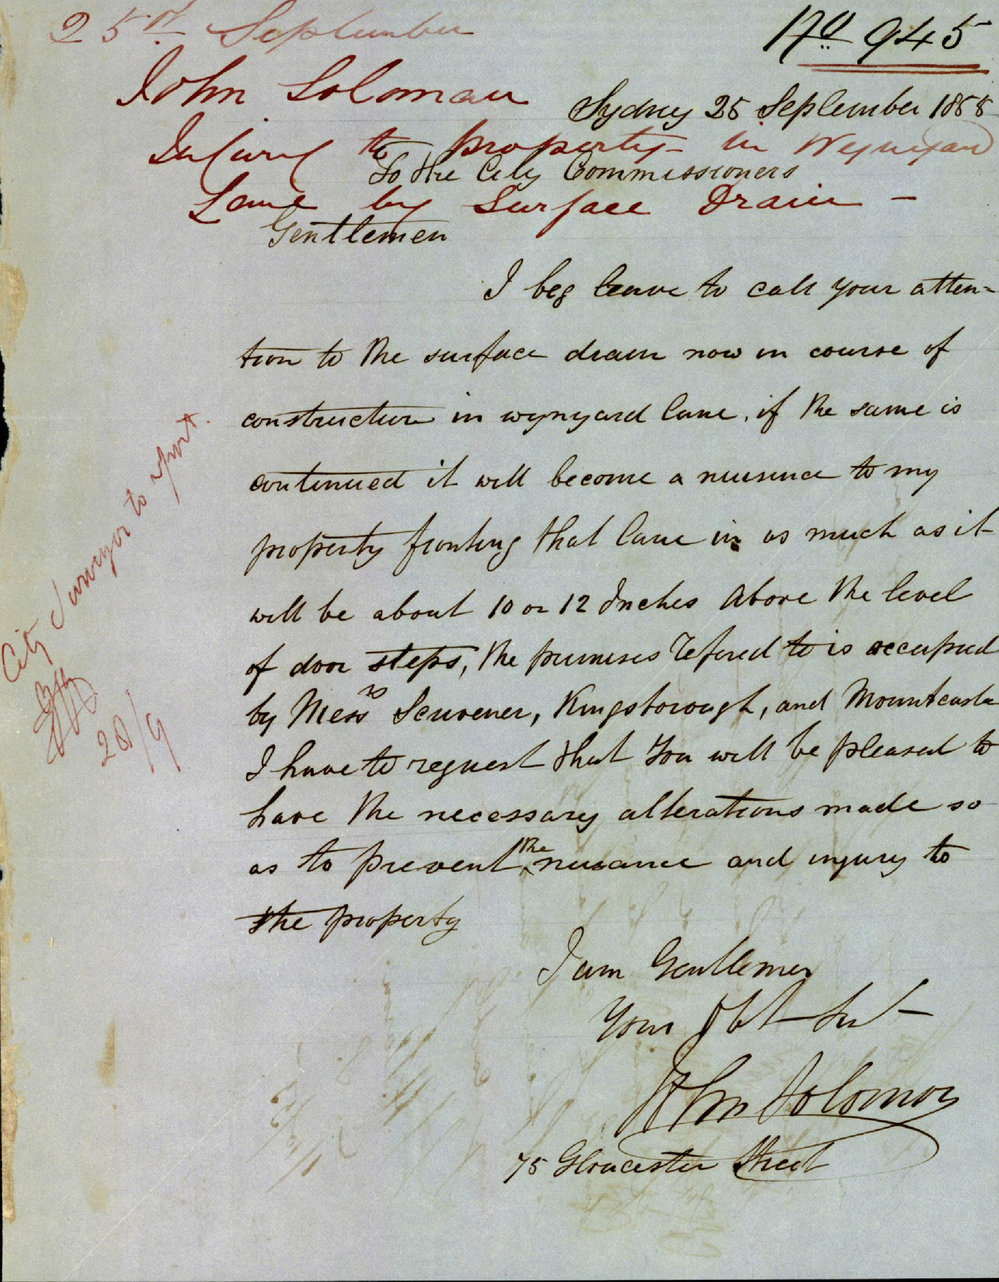 25th September
No 945
John Soloman
Sydney 25 September 1855
Injury to property in Wynyard
To the City Commissioners
Lane by Surface Drain -
Gentlemen
I beg leave to call your atten-
tion to the surface drain now in course of
construction in wynyard lane, if the same is
continued it will become a nuisence to my
property fronting that lane in as much as it
will be about 10 or 12 Inches Above the level
of door steps, the premises refered to is occupied
by Messrs Scrivener, Kingsborough, and Mountcastle
I have to request that You will be pleased to
have the necessary alterations made so
as to prevent the nuisance and injury to
the property
I am Gentlemen
Your Obt Sert
John Solomon
75 Gloucester Street
City Surveyor to report.
28/9